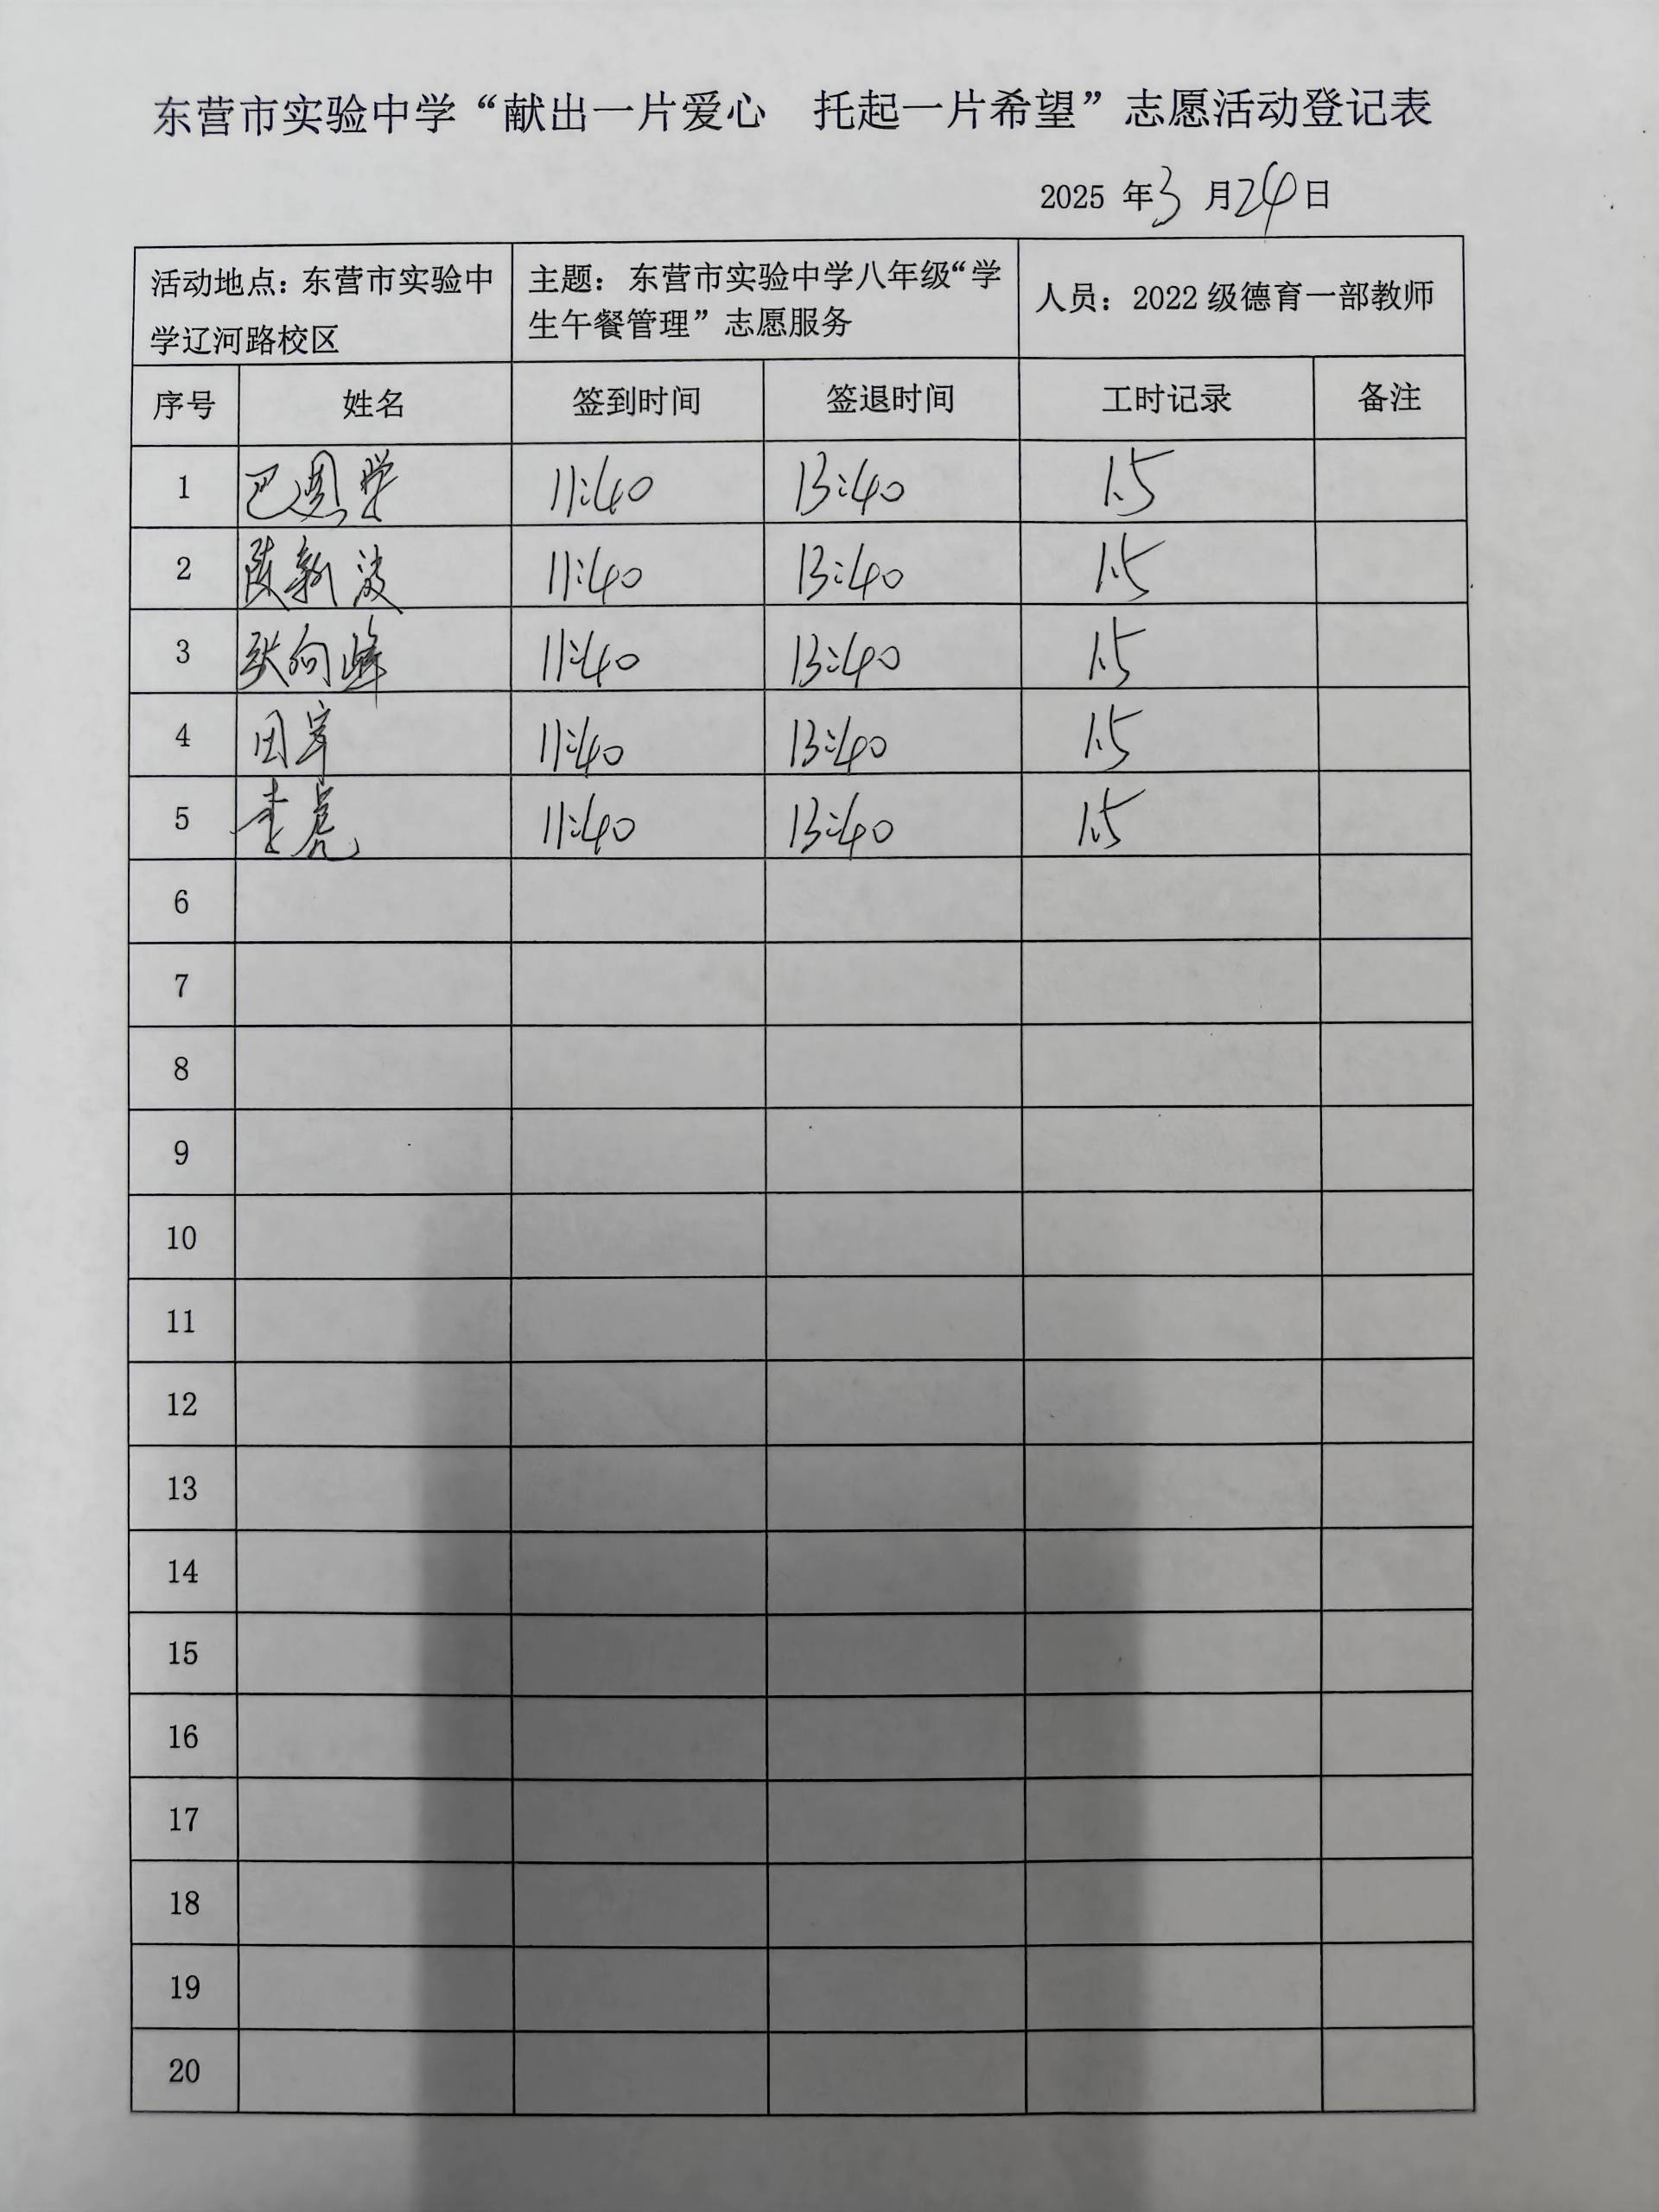 东营市实验中学“献出一片爱心 托起一片希望”志愿活动登记表
2025 年 3 月 24 日
活动地点：东营市实验中
学辽河路校区
主题： 东营市实验中学八年级“学
生午餐管理”志愿服务
人员：2022 级德育一部教师
序号 姓名 签到时间 签退时间 工时记录 备注
1 巴恩学 11:40 13:40 1.5
2 陈新波 11:40 13:40 1.5
3 张向峰 11:40 13:40 1.5
4 田军 11:40 13:40 1.5
5 李虎 11:40 13:40 1.5
6
7
8
9
10
11
12
13
14
15
16
17
18
19
20